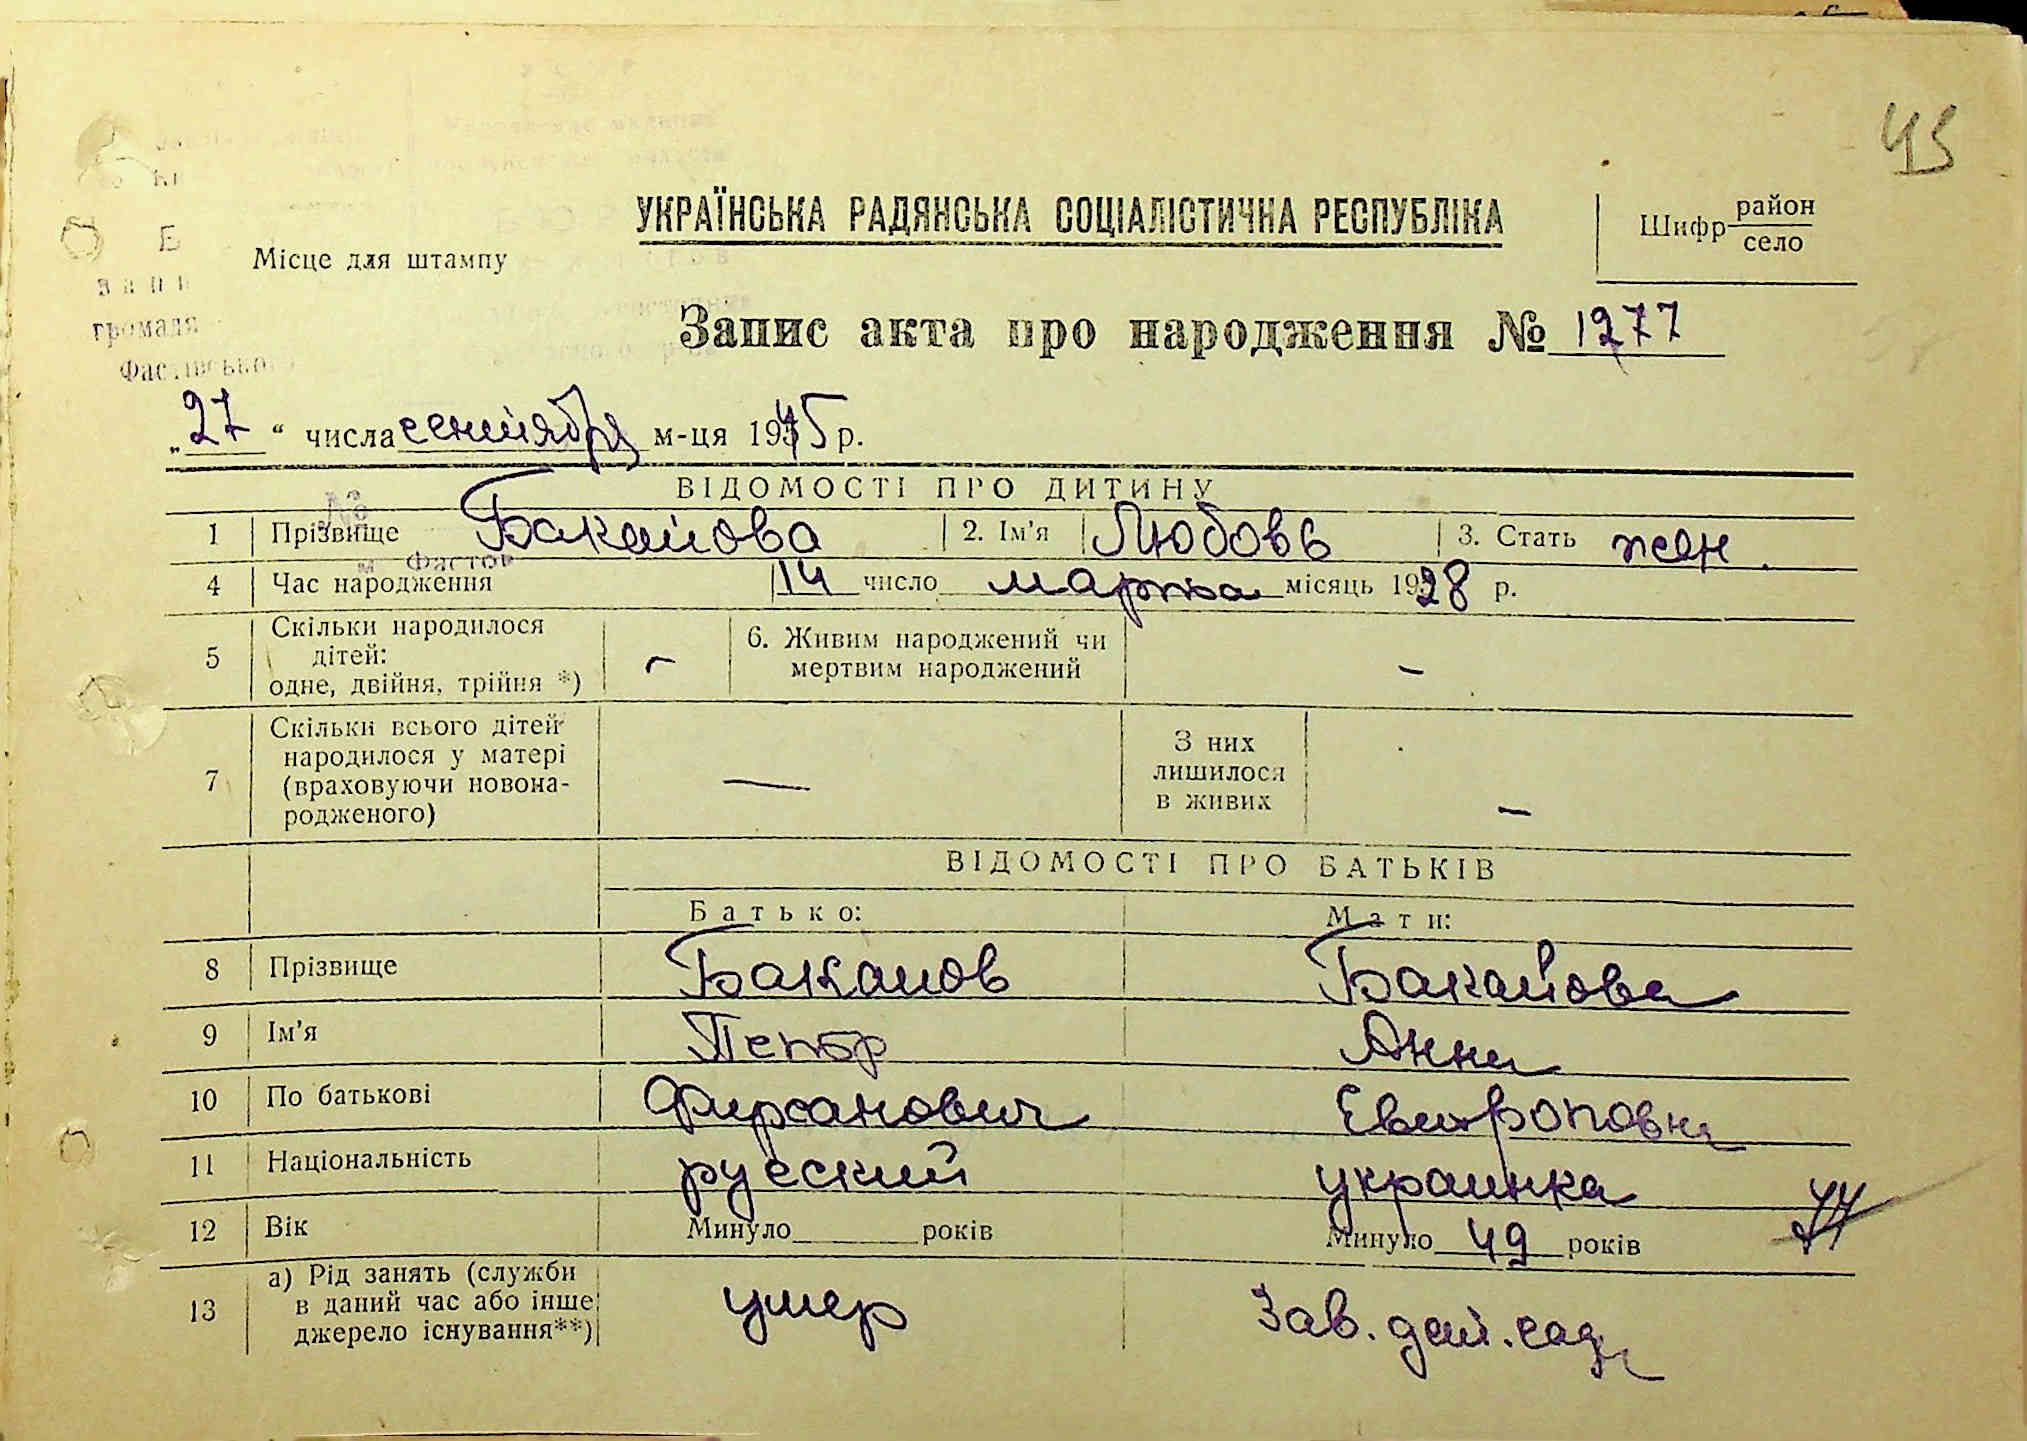 45
УКРАЇНСЬКА РАДЯНСЬКА СОЦІАЛІСТИЧНА РЕСПУБЛІКА
Шифр район
село
Місце для штампу
Запис акта про народження № 1277
громадя
Фастівського
„27“ числа сентября м-ця 1945 р.
ВІДОМОСТІ ПРО ДИТИНУ
№
1 Прізвище Баканова 2. Ім'я Любовь 3. Стать жен.
м. Фастов
4 Час народження 14 число марта місяць 1928 р.
5 Скільки народилося дітей: одне, двійня, трійня *) – 6. Живим народжений чи мертвим народжений –
7 Скільки всього дітей народилося у матері (враховуючи новона-родженого) — З них лишилося в живих –
ВІДОМОСТІ ПРО БАТЬКІВ
Батько: Мати:
8 Прізвище Баканов Баканова
9 Ім'я Петр Анна
10 По батькові Фирсанович
11 Національність русский украинка
12 Вік Минуло______років Минуло 49 років
13 а) Рід занять (служби в даний час або інше джерело існування**) умер Зав. дет. сад